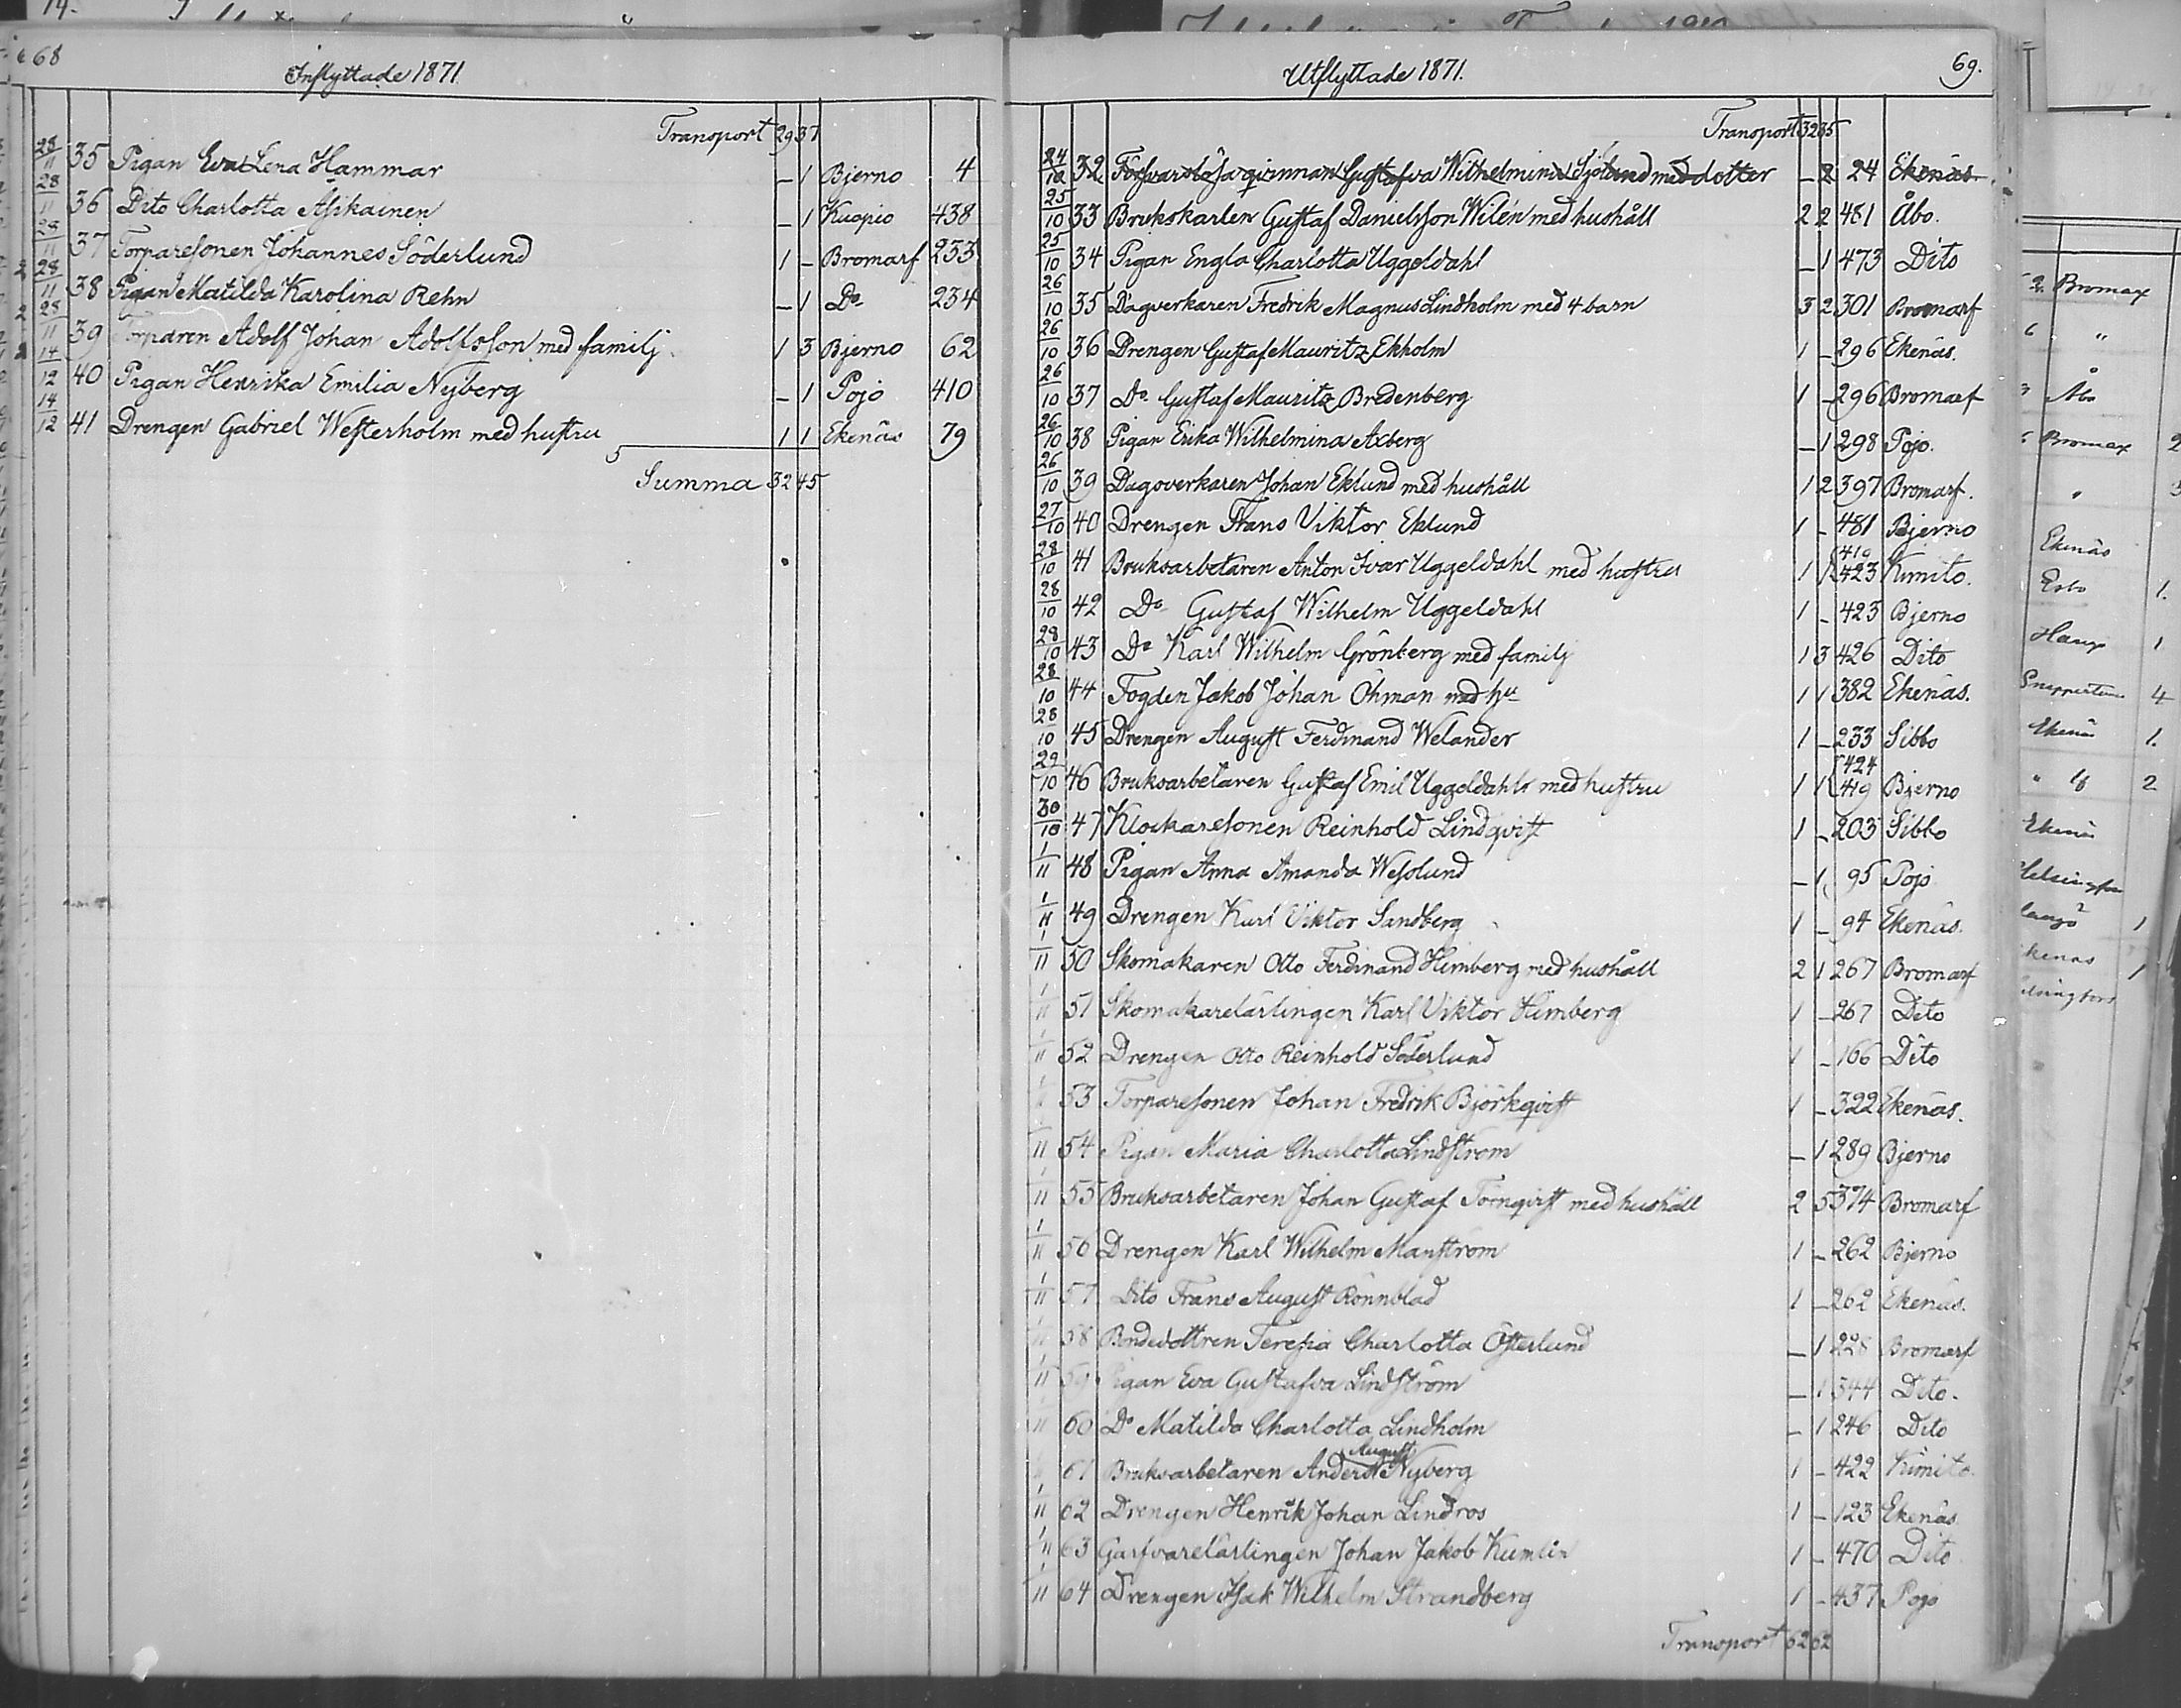 68
Inflyttade 1871.
Transport 29 37
28/11 35 Pigan Eva Lena Hammar — 1 Bjerno 4
28/11 36 Dito Charlotta Asikainen — 1 Kuopio 438
28/11 37 Torparesonen Johannes Söderlund 1 — Bromarf 233
28/11 38 Pigan Matilda Karolina Rehn — 1 Do 234
28/11 39 Torparen Adolf Johan Adolfsson med familj 1 3 Bjerno 62
14/12 40 Pigan Henrika Emilia Nyberg — 1 Pojo 410
14/12 41 Drengen Gabriel Westerholm med hustru 1 1 Ekenäs 79
Summa 32 45
69.
Utflyttade 1871.
Transport 32 35
24/10 32 Försvarslösa qvinnan Gustafva Wilhelmina Sjölund med dotter — 2 24 Ekenäs
25/10 33 Brukskarlen Gustaf Danielsson Wilén med hushåll 2 2 481 Åbo.
25/10 34 Pigan Engla Charlotta Uggeldahl — 1 473 Dito
26/10 35 Dagverkaren Fredrik Magnus Lindholm med 4 barn 3 2 301 Bromarf
26/10 36 Drengen Gustaf Mauritz Ekholm 1 — 296 Ekenäs.
26/10 37 Do Gustaf Mauritz Bredenberg 1 — 296 Bromarf
26/10 38 Pigan Erika Wilhelmina Axberg — 1 298 Pojo.
26/10 39 Dagsverkaren Johan Eklund med hushåll 1 2 397 Bromarf.
27/10 40 Drengen Frans Viktor Eklund 1 — 481 Bjerno
28/10 41 Bruksarbetaren Anton Ivar Uggeldahl med hustru 1 1 419 423 Kimito.
28/10 42 Do Gustaf Wilhelm Uggeldahl 1 — 423 Bjerno
28/10 43 Do Karl Wilhelm Grönberg med familj 1 3 426 Dito
28/10 44 Fogden Jakob Johan Öhman med hu 1 1 382 Ekenäs.
28/10 45 Drengen August Ferdinand Welander 1 — 233 Sibbo
29/10 46 Bruksarbetaren Gustaf Emil Uggeldahl med hustru 1 1 424 419 Bjerno
30/10 47 Klockaresonen Reinhold Lindqvist 1 — 203 Sibbo
1/11 48 Pigan Anna Amanda Wesolund — 1 95 Pojo
1/11 49 Drengen Karl Viktor Sandberg 1 — 94 Ekenäs.
1/11 50 Skomakaren Otto Ferdinand Himberg med hushåll 2 1 267 Bromarf
1/11 51 Skomakarelärlingen Karl Viktor Himberg 1 — 267 Dito
1/11 52 Drengen Otto Reinhold Söderlund 1 — 166 Dito
53 Torparesonen Johan Fredrik Björkqvist 1 — 322 Ekenäs.
1/11 54 Pigan Maria Charlotta Lindström — 1 289 Bjerno
1/11 55 Bruksarbetaren Johan Gustaf Törnqvist med hushåll 2 5 374 Bromarf
1/11 56 Drengen Karl Wilhelm Manström 1 — 262 Bjerno
1/11 57 Dito Frans August Rönnblad 1 — 262 Ekenäs.
1/11 58 Bondedottren Teresia Charlotta Österlund — 1 228 Bromarf
1/11 59 Pigan Eva Gustafva Lindström — 1 344 Dito.
1/11 60 Do Matilda Charlotta Lindholm — 1 246 Dito
61 Bruksarbetaren Anders August Nyberg 1 — 422 Kimito.
1/11 62 Drengen Henrik Johan Lindros 1 — 123 Ekenäs
1/11 63 Garfvarelärlingen Johan Jakob Kumlin 1 — 470 Dito
1/11 64 Drengen Isak Wilhelm Strandberg 1 — 437 Pojo
Transport 62 62
Bromarf
"
Åbo
Bromarf 2
"
Ekenäs
Esbo 1.
Hangö 1
4
Ekenäs 1.
" 2
Ekenäs